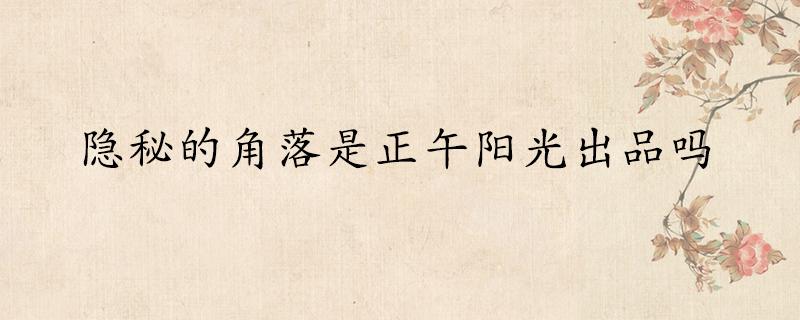 隐秘的角落是正午阳光出品吗